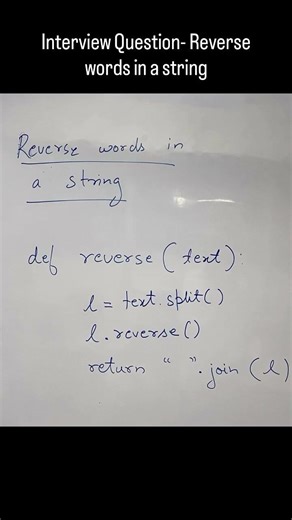 Interview Question- Reverse
words in a string
Reverse words in
a string
def reverse (text):
l = text.split()
l.reverse()
return " ".join (l)